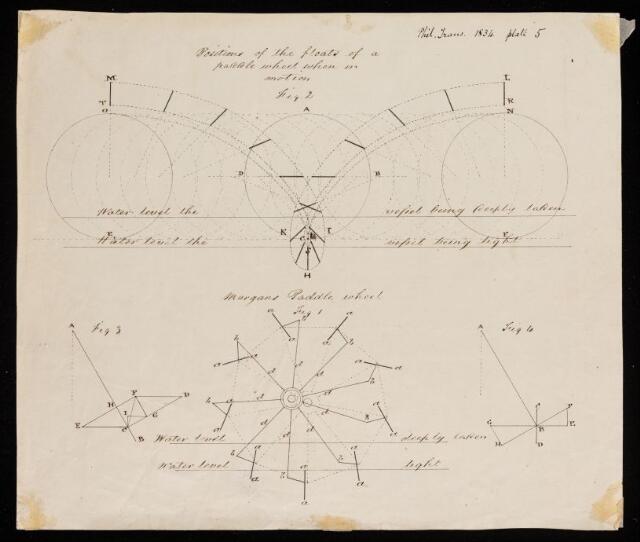 Phil. Trans. 1834 plate 5
Positions of the floats of a
paddle wheel when in
motion
Fig 2
M
L
T
R
O
A
N
D
B
Water level the vessel being deeply laden
E
K
I
F
Water level the vessel being light
H
Morgans Paddle wheel
Fig 1
Fig 3
Fig 4
A
A
a
b
a
a
b
a
d
d
a
b
a
d
d
a
b
a
F
D
H
I
G
E
C
B
Water level deeply laden
C
F
G
B
E
H
D
Water level light
a
a
a